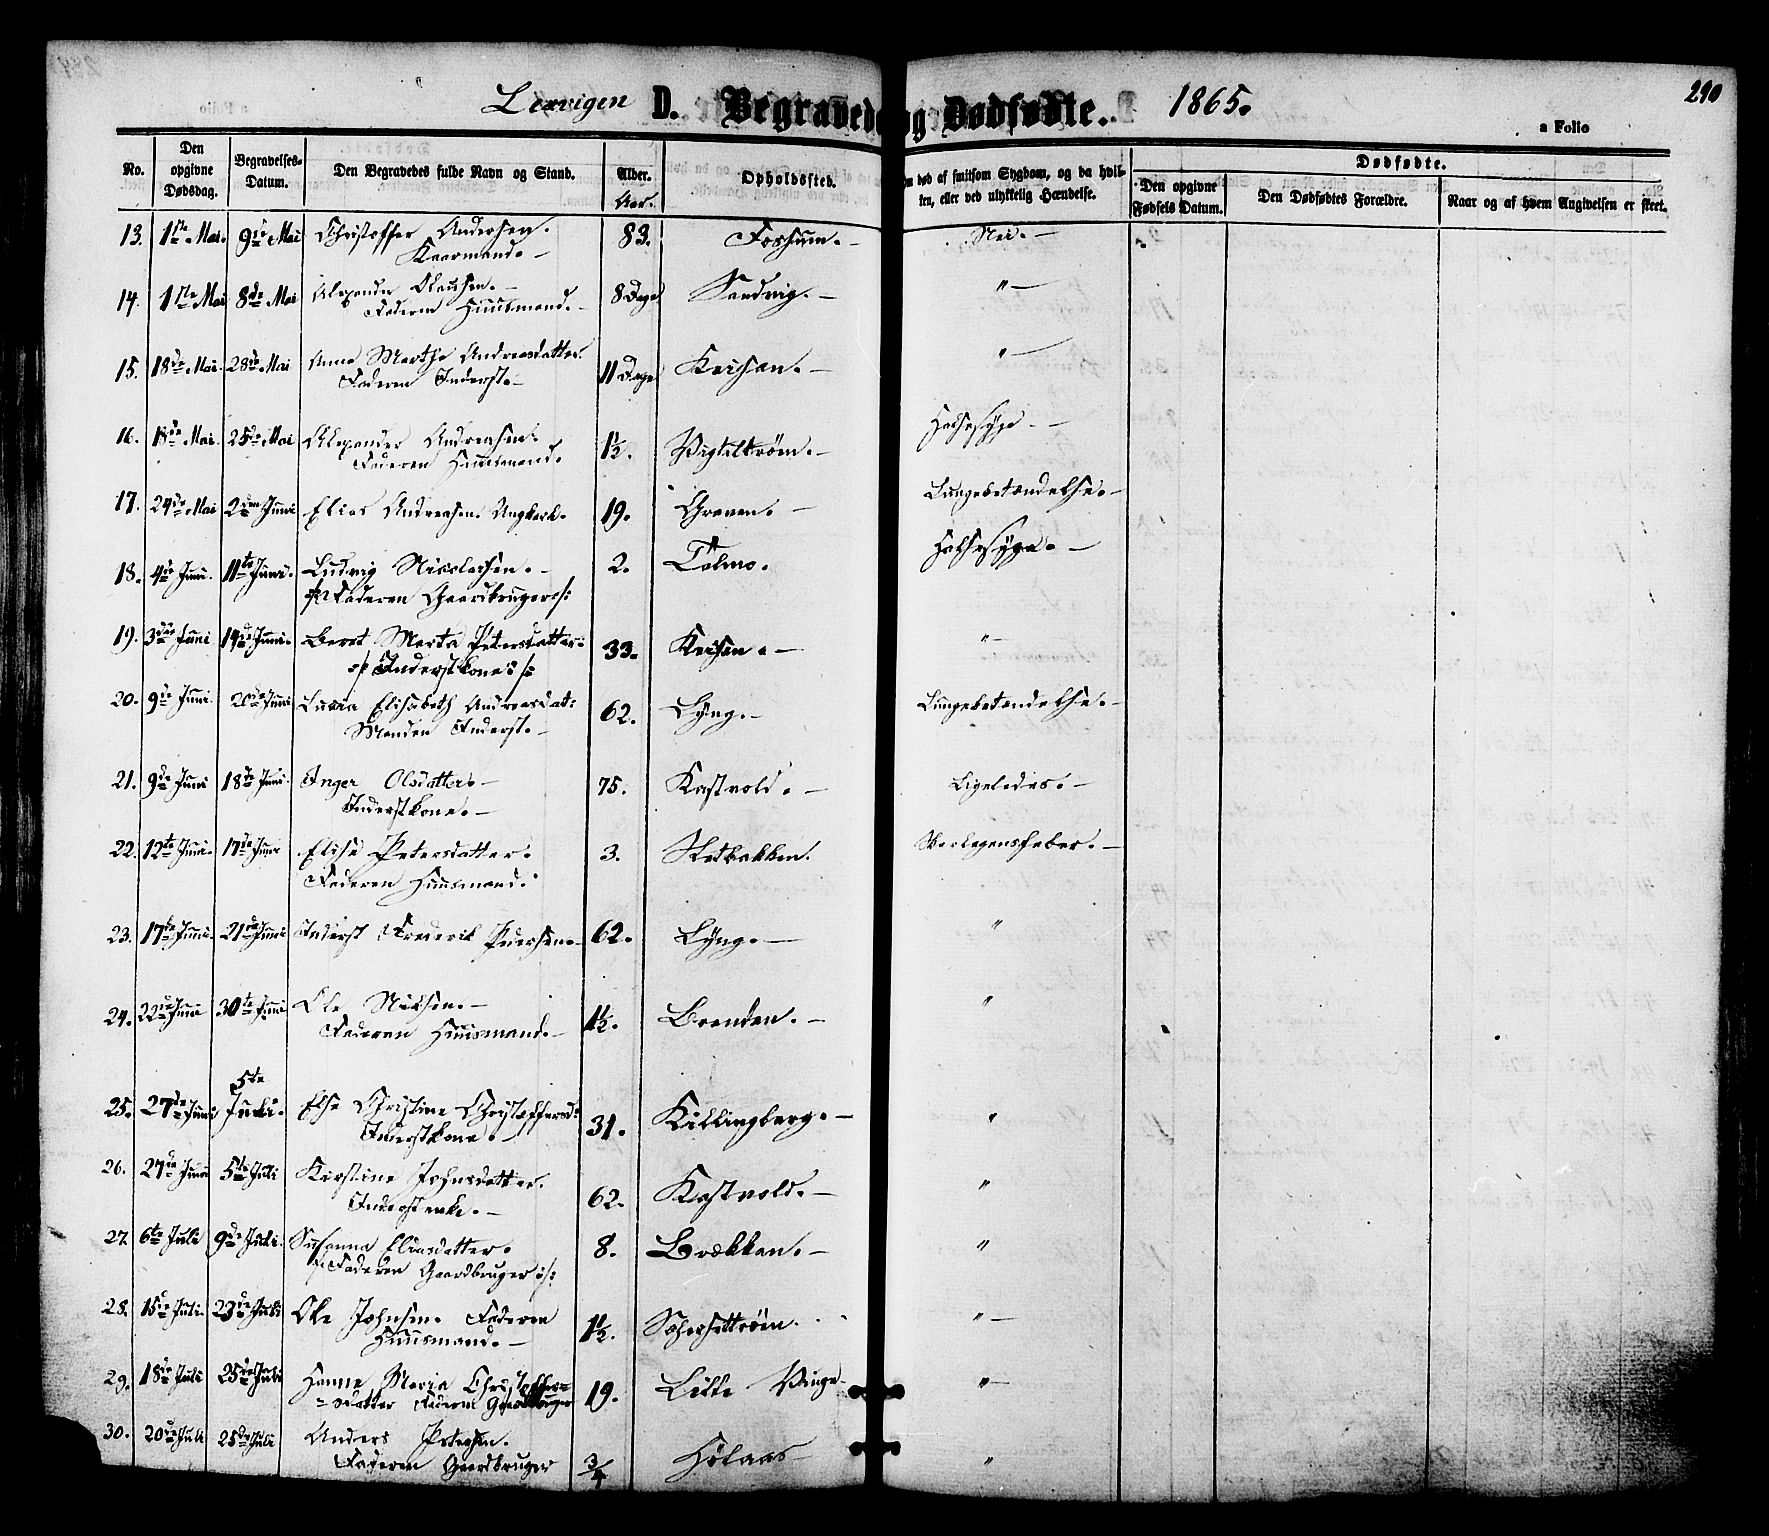 290
Lexvigen D. Begravede og Dødfødte. 1865.
a Folio
No. Den opgivne Dødsdag. Begravelses-Datum. Den Begravedes fulde Navn og Stand. Alder. Opholdssted. død af smitsom Sygdom, og da hvilken, eller ved ulykkelig Hændelse. Dødfødte.
Aar. Den opgivne Fødsels Datum. Den Dødfødtes Forældre. Naar og af hvem Angivelsen er skeet.
13. 1ste Mai. 9de Mai Christoffer Andersen. 83. Foshum. Nei.
Kaarmand.
14. 1ste Mai 8de Mai Alexander Clausen. 8 Dage Sandvig. "
Faderen Huusmand.
15. 18de Mai. 28de Mai Anne Marthe Andreasdatter. 11 Dage Keisan. "
Faderen Inderst.
16. 18de Mai. 25de Mai Alexander Andreasen. 1½. Vigtiltrøen. Halssyge.
Faderen Huusmand.
17. 24de Mai 2den Juni Elias Andreasen. Ungkarl. 19. Grønen. Lungebetændelse.
18. 4de Juni. 11te Juni. Ludvig Nicolaisen. 2. Tølmo. Halssyge.
Faderen Gaardbruger
19. 3die Juni 14de Juni. Beret Marta Petersdatter. 33. Keisan. "
Inderstkone
20. 9de Juni. 20de Juni Elisabeth Andreasdat: 62. Lyng. Lungebetændelse.
Manden Inderst.
21. 9de Juni 18de Juni. Inger Olsdatter. 75. Kastvold. Ligeledes.
Inderstkone.
22. 12te Juni. 17de Juni Elise Petersdatter. 3. Skarlagensfeber.
Faderen Huusmand.
23. 17de Juni. 21de Juni Inderst Frederik Pedersen. 62. Lyng. "
24. 22de Juni 30te Juni Ole 1½. Brenden. "
Faderen Huusmand.
25. 27de Juni 5te Juli. Else Christine Christoffersd: 31. Killingberg. "
Inderstkone.
26. 27de Juni 5te Juli Kirstine Johnsdatter. 62. Kastvold. "
Inderstenke.
27. 6te Juli 9de Juli. Susanna Eliasdatter. 8. Brækkan. "
Faderen Gaardbruger
28. 15de Juli. 23de Juli Ole Johnsen. Faderen 1½. "
Huusmand.
29. 18de Juli 25de Juli Hanne Maria Christoffers= 19. Lille Vinge "
=datter Faderen Gaardbruger
30. 20de Juli 25de Juli Anders Petersen. 3/4 Hølaas "
Faderen Gaardbruger